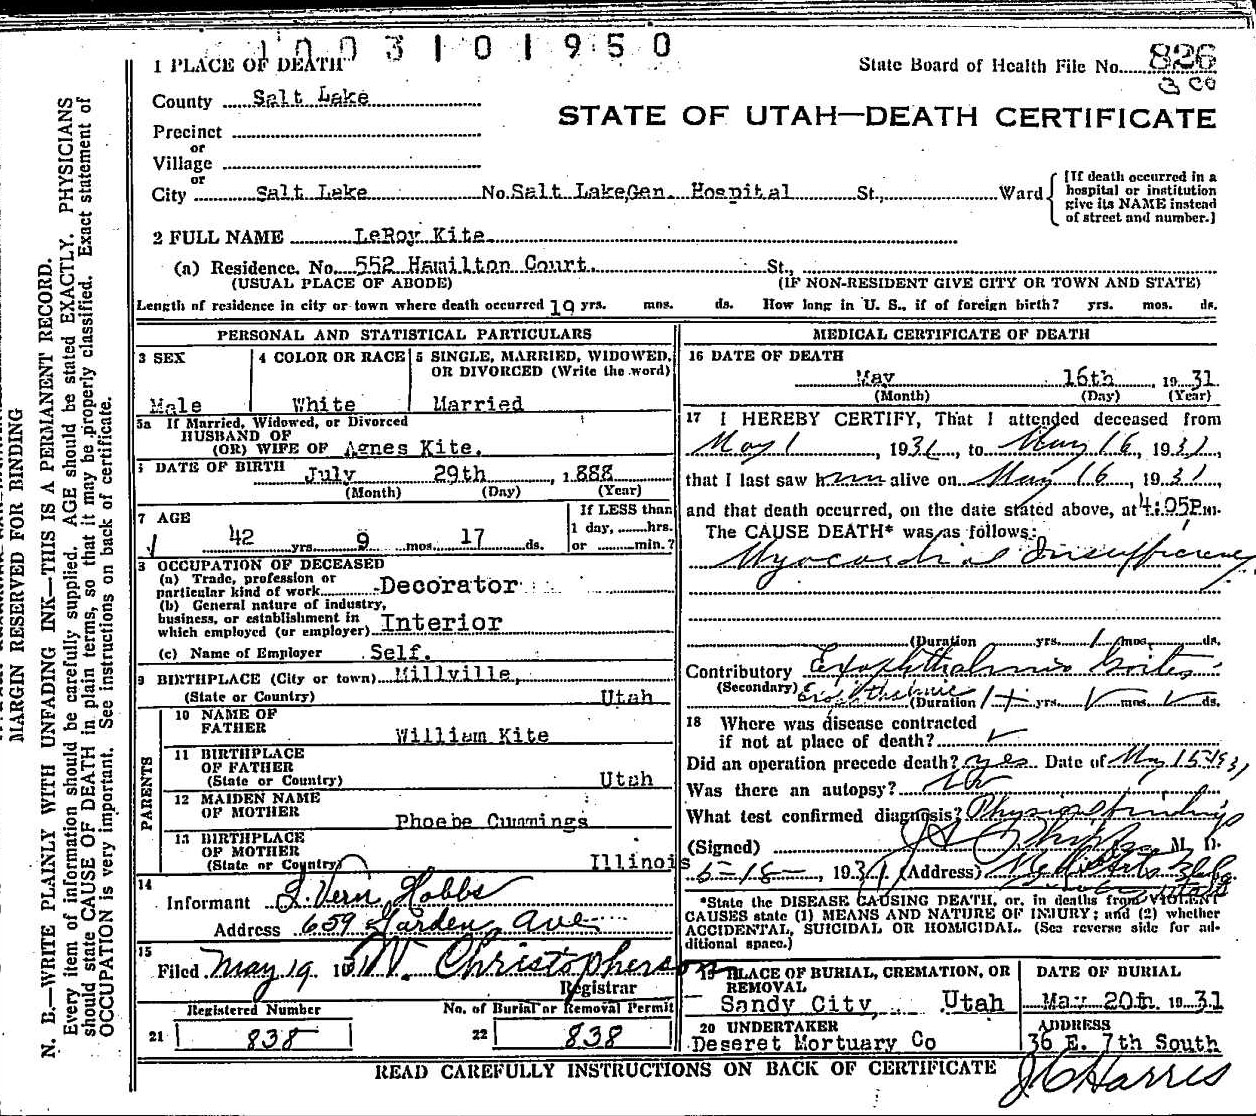 1003101950
1 PLACE OF DEATH
State Board of Health File No. 826
3 co
County Salt Lake
STATE OF UTAH—DEATH CERTIFICATE
Precinct
or
Village
or
City Salt Lake No. Salt Lake Gen. Hospital St., Ward
[If death occurred in a hospital or institution give its NAME instead of street and number.]
2 FULL NAME LeRoy Kite
(a) Residence. No. 552 Hamilton Court. St.,
(USUAL PLACE OF ABODE) (IF NON-RESIDENT GIVE CITY OR TOWN AND STATE)
Length of residence in city or town where death occurred 19 yrs. mos. ds. How long in U. S., if of foreign birth? yrs. mos. ds.
PERSONAL AND STATISTICAL PARTICULARS
3 SEX
Male
4 COLOR OR RACE
White
5 SINGLE, MARRIED, WIDOWED, OR DIVORCED (Write the word)
Married
5a If Married, Widowed, or Divorced
HUSBAND OF
(OR) WIFE OF Agnes Kite.
DATE OF BIRTH July 29th, 1888
(Month) (Day) (Year)
7 AGE
42 yrs. 9 mos. 17 ds.
If LESS than
1 day, hrs.
or min.?
8 OCCUPATION OF DECEASED
(a) Trade, profession or
particular kind of work Decorator
(b) General nature of industry,
business, or establishment in
which employed (or employer) Interior
(c) Name of Employer Self.
9 BIRTHPLACE (City or town) Millville,
(State or Country) Utah
PARENTS
10 NAME OF
FATHER William Kite
11 BIRTHPLACE
OF FATHER
(State or Country) Utah
12 MAIDEN NAME
OF MOTHER Phoebe Cummings
13 BIRTHPLACE
OF MOTHER
(State or Country) Illinois
14
Informant L. Vern Hobbs
Address 659 Garden Ave
15
Filed May 19 W. Christopherson
Registrar
Registered Number
21 838
No. of Burial or Removal Permit
22 838
MEDICAL CERTIFICATE OF DEATH
16 DATE OF DEATH
May 16th, 19 31
(Month) (Day) (Year)
17 I HEREBY CERTIFY, That I attended deceased from
May 1, 1931, to May 16, 1931,
that I last saw him alive on May 16, 1931,
and that death occurred, on the date stated above, at 4:05P.m.
The CAUSE DEATH* was as follows:
Myocardial Insufficiency
(Duration yrs. 1 mos. ds.
Contributory Exophthalmic Goiter
(Secondary) Exophthalmic
(Duration 1+ yrs. mos. ds.
18 Where was disease contracted
if not at place of death?
Did an operation precede death? yes Date of May 15-1931
Was there an autopsy? No
What test confirmed diagnosis? Physical findings
(Signed) M. D.
5-18-, 1931 (Address)
*State the DISEASE CAUSING DEATH, or, in deaths from VIOLENT
CAUSES state (1) MEANS AND NATURE OF INJURY; and (2) whether
ACCIDENTAL, SUICIDAL OR HOMICIDAL. (See reverse side for ad-
ditional space.)
19 PLACE OF BURIAL, CREMATION, OR
REMOVAL
Sandy City, Utah
DATE OF BURIAL
May 20th 19 31
20 UNDERTAKER
Deseret Mortuary Co
ADDRESS
36 E. 7th South
READ CAREFULLY INSTRUCTIONS ON BACK OF CERTIFICATE
J C Harris
MARGIN RESERVED FOR BINDING
N. B.—WRITE PLAINLY WITH UNFADING INK—THIS IS A PERMANENT RECORD.
Every item of information should be carefully supplied. AGE should be stated EXACTLY. PHYSICIANS
should state CAUSE OF DEATH in plain terms, so that it may be properly classified. Exact statement of
OCCUPATION is very important. See instructions on back of certificate.